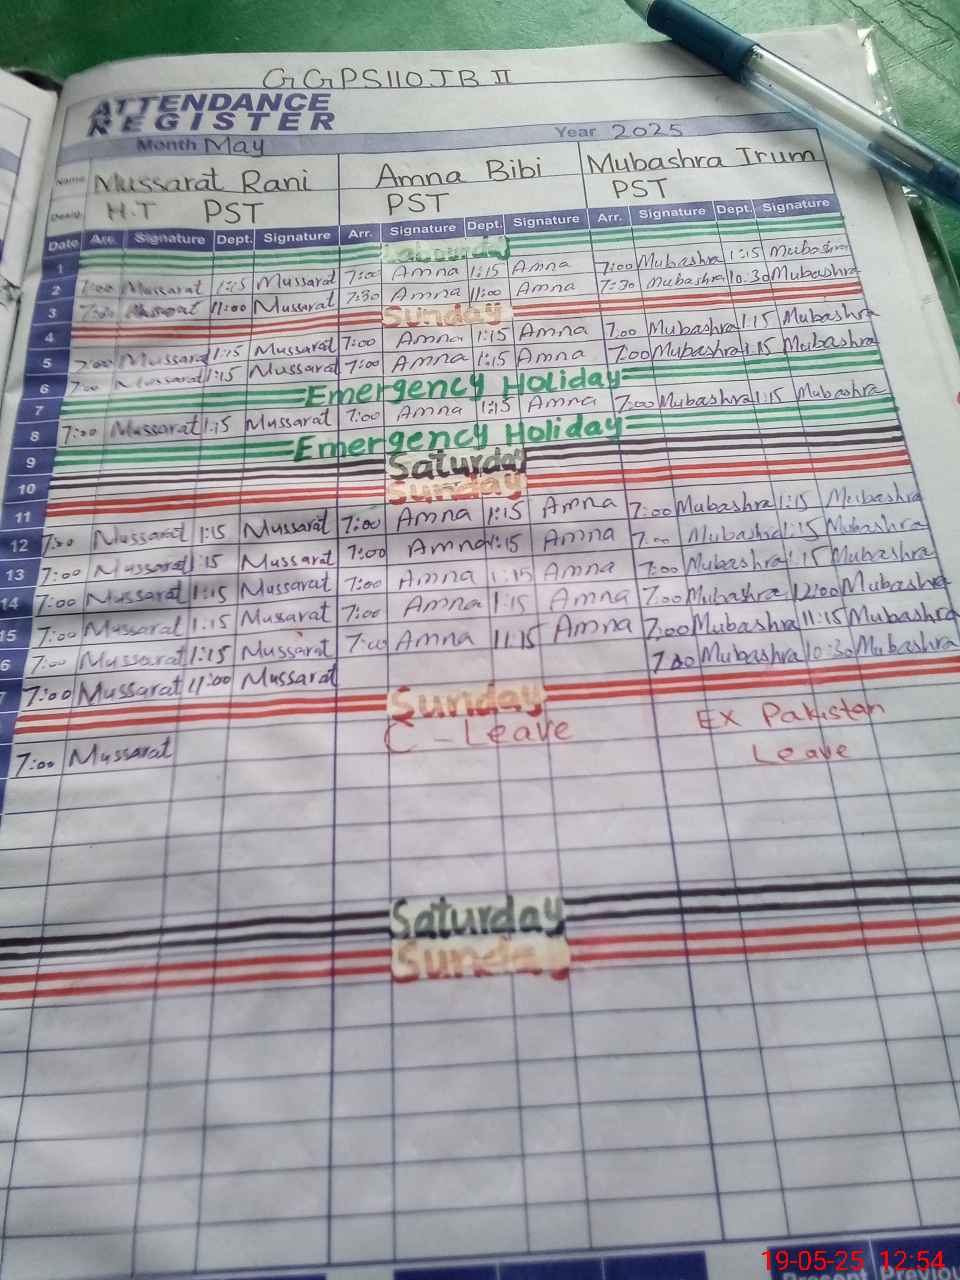 GGPS110JB II
ATTENDANCE
REGISTER
Month May Year 2025
Name Mussarat Rani Amna Bibi Mubashra Irum
Desig. H.T PST PST PST
Date Arr. Signature Dept. Signature Arr. Signature Dept. Signature Arr. Signature Dept. Signature
1 Labourday
2 7:00 Mussarat 1:15 Mussarat 7:00 Amna 1:15 Amna 7:00 Mubashra 1:15 Mubashra
3 7:30 Mussarat 11:00 Mussarat 7:30 Amna 11:00 Amna 7:30 Mubashra 10:30 Mubashra
4 Sunday
5 7:00 Mussarat 1:15 Mussarat 7:00 Amna 1:15 Amna 7:00 Mubashra 1:15 Mubashra
6 7:00 Mussarat 1:15 Mussarat 7:00 Amna 1:15 Amna 7:00 Mubashra 1:15 Mubashra
7 Emergency Holiday
8 7:00 Mussarat 1:15 Mussarat 7:00 Amna 1:15 Amna 7:00 Mubashra 1:15 Mubashra
9 Emergency Holiday
10 Saturday
11 Sunday
12 7:00 Mussarat 1:15 Mussarat 7:00 Amna 1:15 Amna 7:00 Mubashra 1:15 Mubashra
13 7:00 Mussarat 1:15 Mussarat 7:00 Amna 1:15 Amna 7:00 Mubashra 1:15 Mubashra
14 7:00 Mussarat 1:15 Mussarat 7:00 Amna 1:15 Amna 7:00 Mubashra 1:15 Mubashra
15 7:00 Mussarat 1:15 Musarat 7:00 Amna 1:15 Amna 7:00 Mubashra 12:00 Mubashra
6 7:00 Mussarat 1:15 Mussarat 7:00 Amna 11:15 Amna 7:00 Mubashra 11:15 Mubashra
7:00 Mussarat 11:00 Mussarat 7:00 Mubashra 10:30 Mubashra
Sunday
7:00 Mussarat C-Leave Ex Pakistan
Leave
Saturday
Sunday
19-05-25 12:54